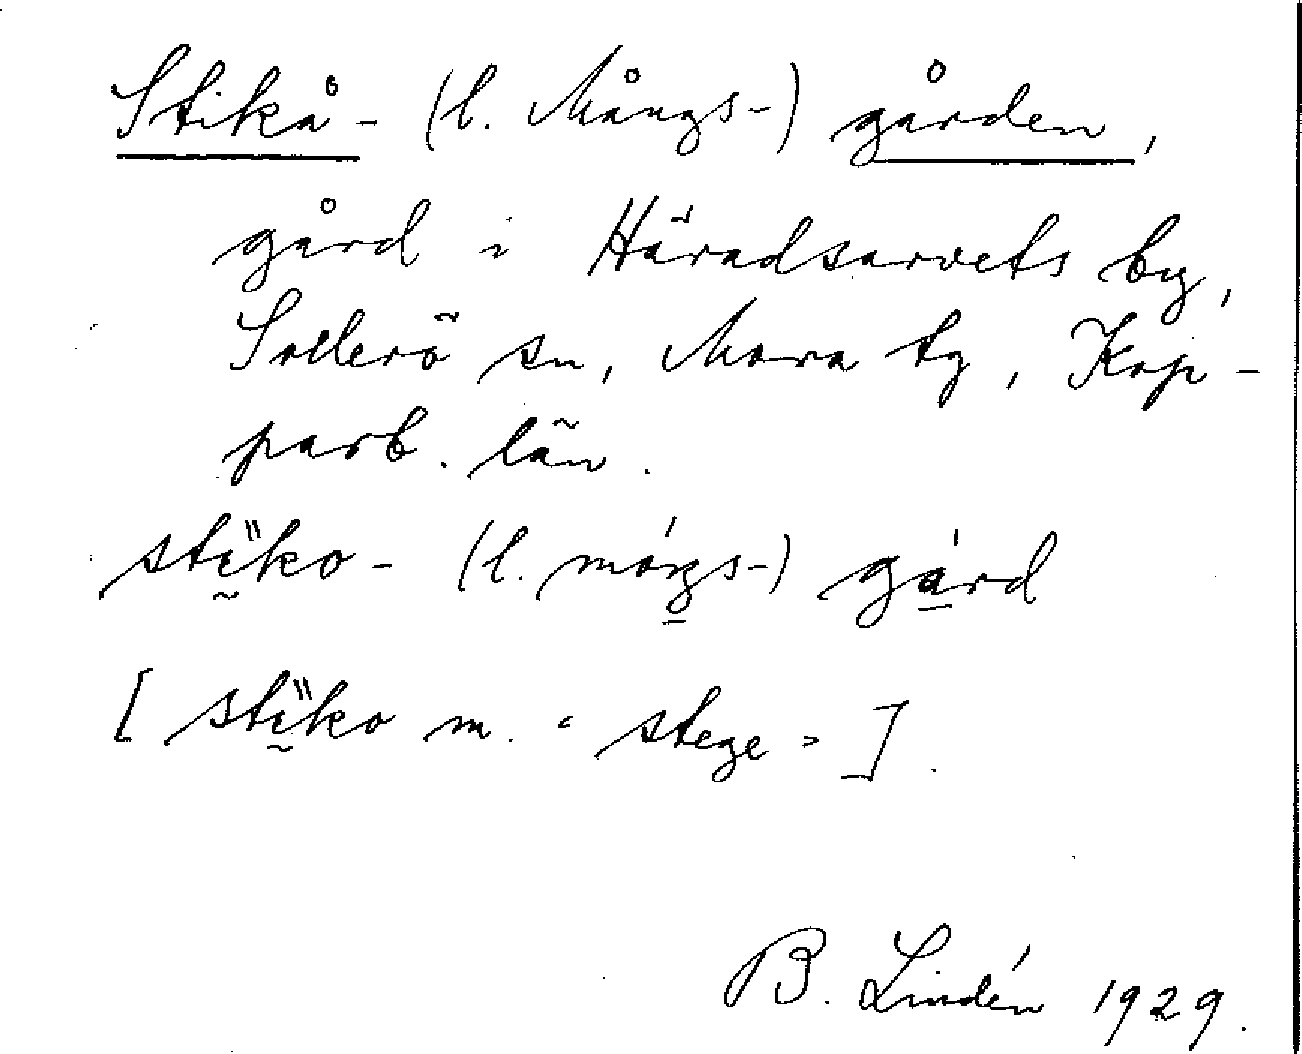 Stikå- (l. Mångs-) gården,
gård i Häradsarvets by,
Sollerö sn, Mora tg, Kop-
parb. län.
stḭ̋ko- (l. mórgs-) gá̱rd
[ stḭ̋ko m. "stege" ].
B. Lindén 1929.